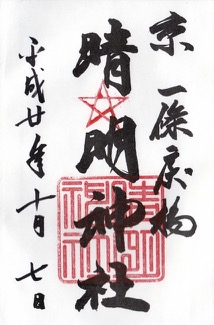 京 一條戻橋
晴明神社
平成廿年十月七日